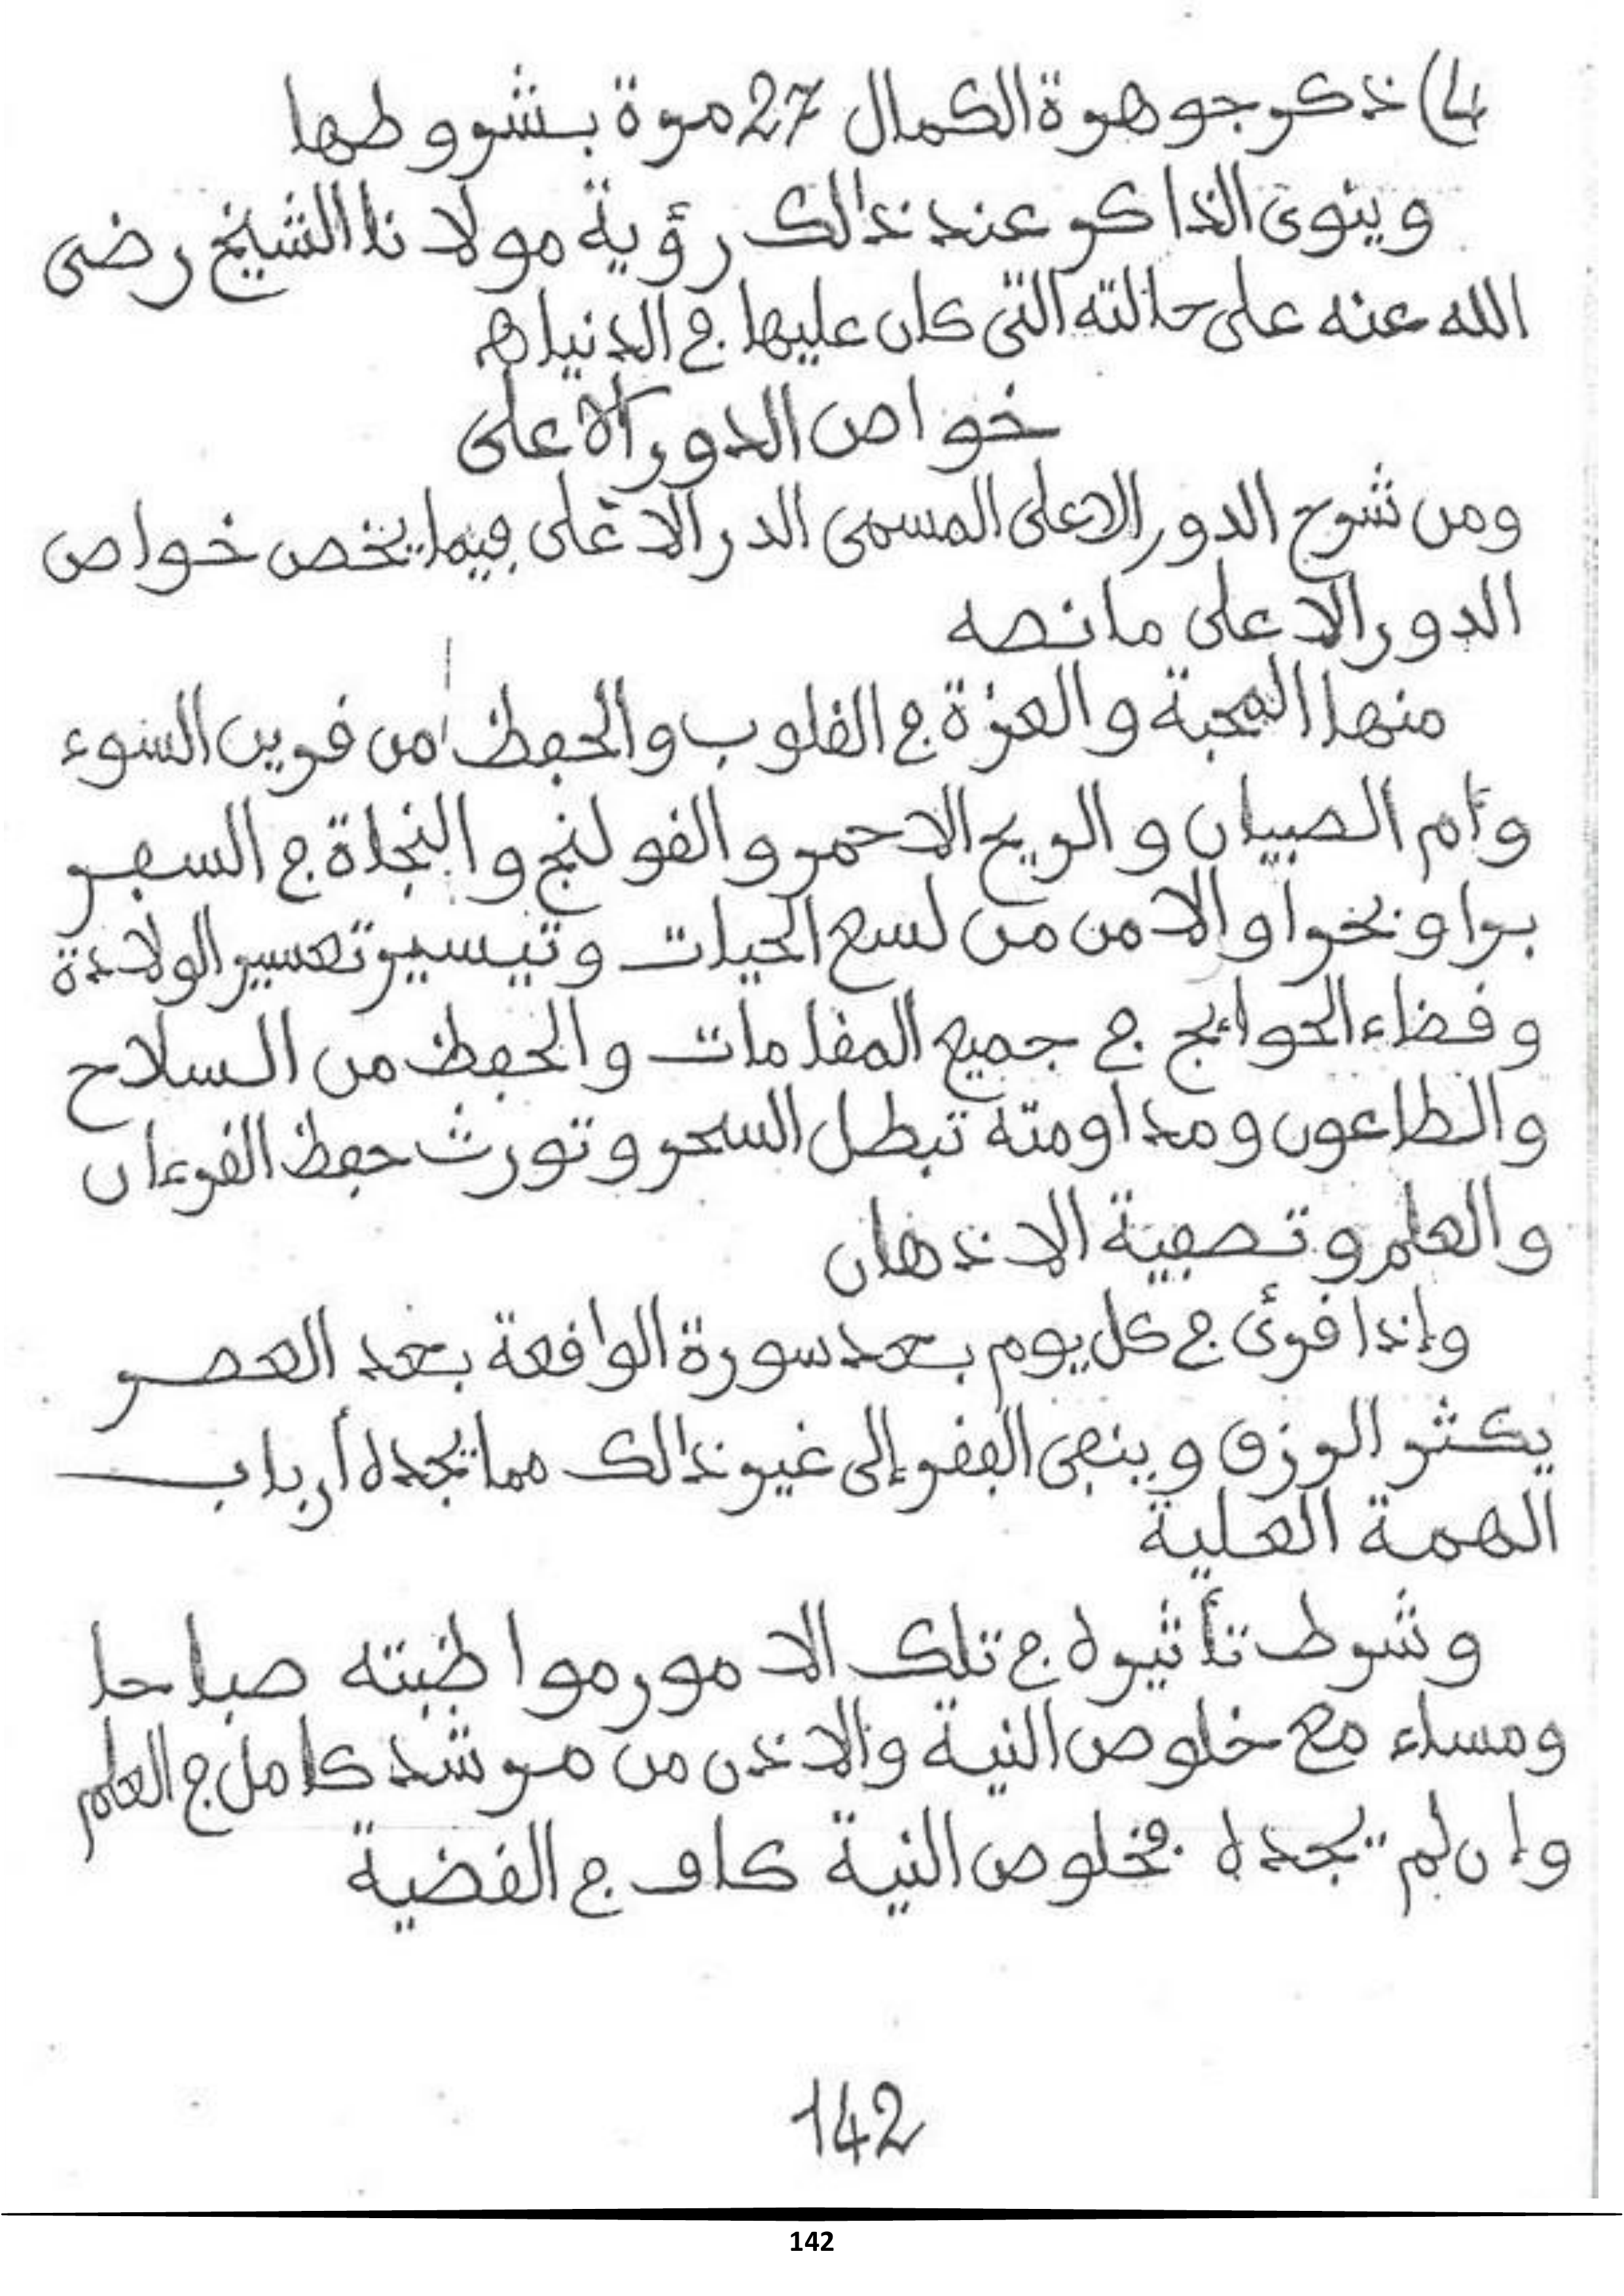 4) ذكر جوهرة الكمال 27 مرة بشروطها
وينوى الذاكر عند ذالك رؤية مولانا الشيخ رضى
الله عنه على حالته التى كان عليها في الدنيا هـ
خواص الدور الاعلى
ومن شرح الدور الاعلى المسمى الدر الاغلى فيما يخص خواص
الدور الاعلى ما نصه
منها المحبة والعزة في القلوب والحفظ من قرين السوء
وأم الصبيان والريح الاحمر والقولنج والنجاة في السفر
برا وبحرا والامن من لسع الحيات وتيسير تعسير الولادة
وقضاء الحوائج في جميع المقامات والحفظ من السلاح
والطاعون ومداومته تبطل السحر وتورث حفظ القرءان
والعلم وتصفية الاذهان
وإذا قرئ في كل يوم بعد سورة الواقعة بعد العصر
يكثر الرزق وينفى الفقر إلى غير ذالك مما يجده أرباب
الهمة العلية
وشرط تأثيره في تلك الامور مواظبته صباحا
ومساء مع خلوص النية والاذن من مرشد كامل في العلم
وإن لم يجده فخلوص النية كاف في القضية
142
142